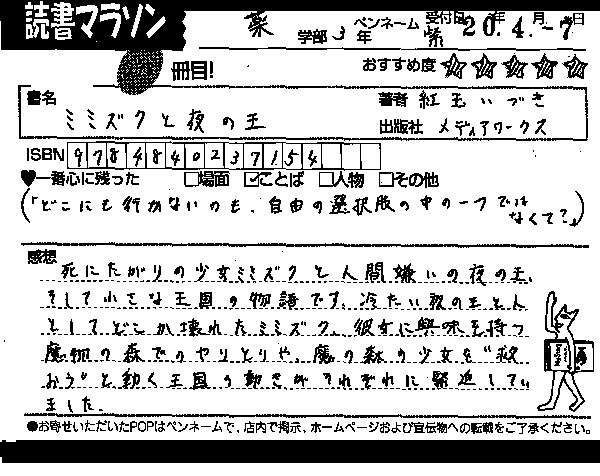 読書マラソン
薬 学部 3 年 ペンネーム 紫 受付日 20年 4.月-7日
冊目!
おすすめ度 ☆☆☆☆☆
書名 ミミズクと夜の王
著者 紅玉いづき
出版社 メディアワークス
ISBN 9784840237154
♥一番心に残った □場面 ☑ことば □人物 □その他
(「どこにも行かないのも、自由の選択肢の中の一つではなくて?」)
感想
死にたがりの少女ミミズクと人間嫌いの夜の王、
そして小さな王国の物語です。冷たい夜の王と人
としてどこか壊れたミミズク、彼女に興味を持つ
魔物の森でのやりとりや、魔の森の少女を"救
おう"と動く王国の動きがそれぞれに緊迫してい
ました。
●お寄せいただいたPOPはペンネームで、店内で掲示、ホームページおよび宣伝物への転載をご了承ください。